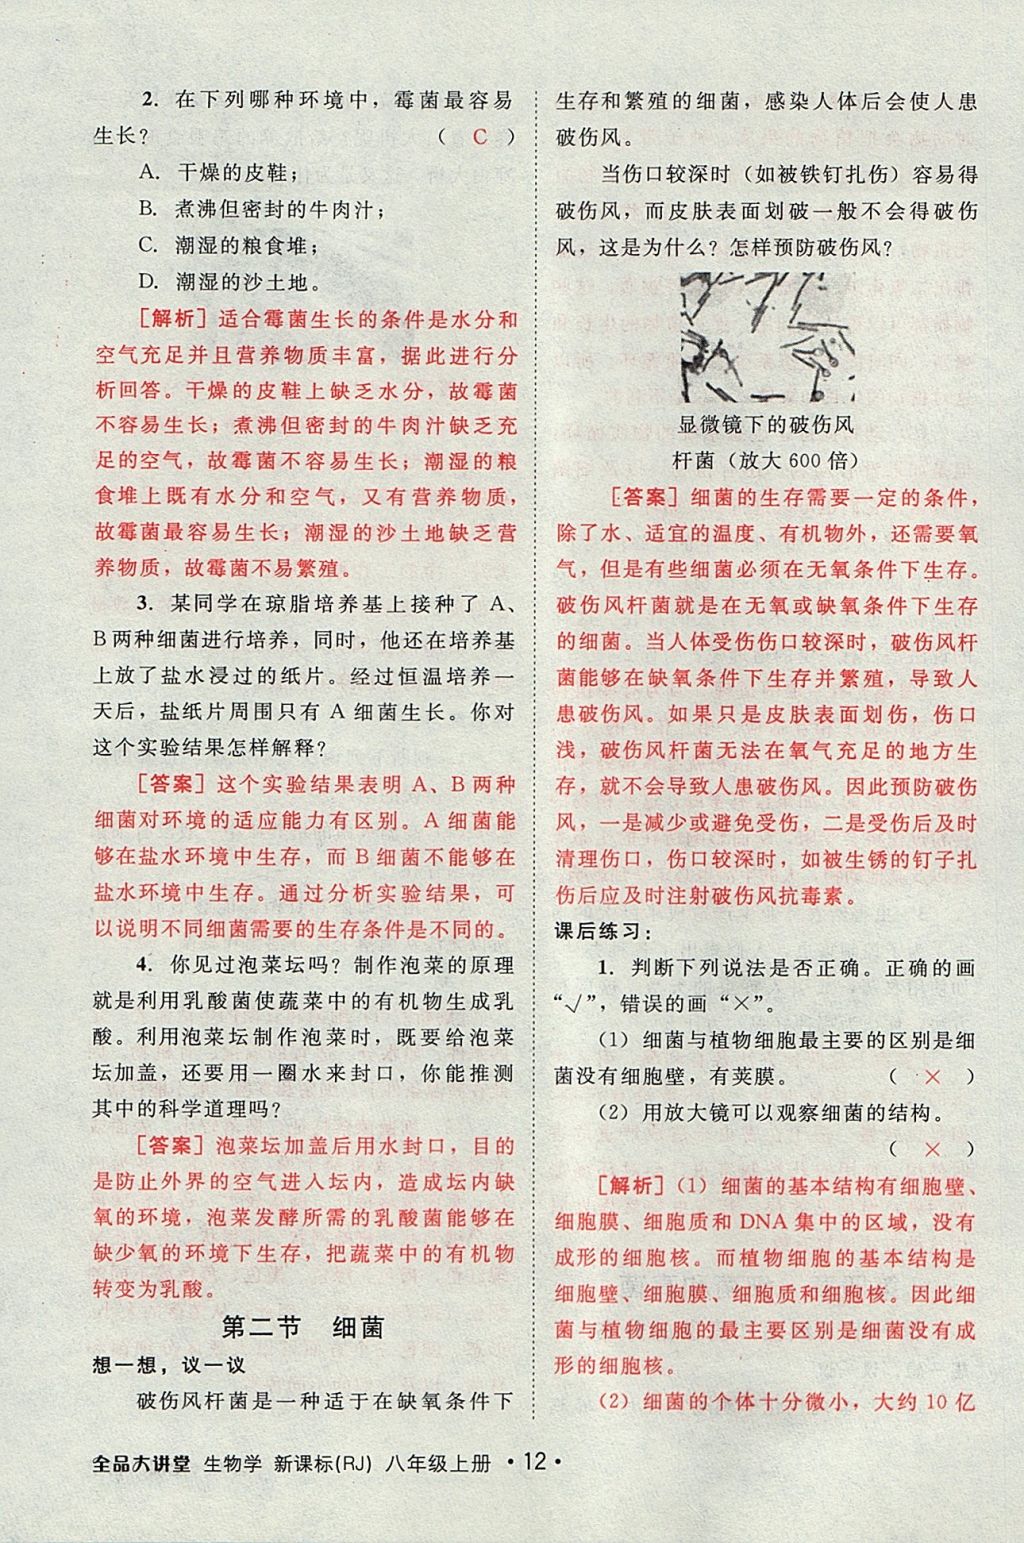 2. 在下列哪种环境中，霉菌最容易
生长？ （ C ）
A. 干燥的皮鞋；
B. 煮沸但密封的牛肉汁；
C. 潮湿的粮食堆；
D. 潮湿的沙土地。
［解析］适合霉菌生长的条件是水分和
空气充足并且营养物质丰富，据此进行分
析回答。干燥的皮鞋上缺乏水分，故霉菌
不容易生长；煮沸但密封的牛肉汁缺乏充
足的空气，故霉菌不容易生长；潮湿的粮
食堆上既有水分和空气，又有营养物质，
故霉菌最容易生长；潮湿的沙土地缺乏营
养物质，故霉菌不易繁殖。
3. 某同学在琼脂培养基上接种了 A、
B两种细菌进行培养，同时，他还在培养基
上放了盐水浸过的纸片。经过恒温培养一
天后，盐纸片周围只有 A 细菌生长。你对
这个实验结果怎样解释？
［答案］这个实验结果表明 A、B 两种
细菌对环境的适应能力有区别。A 细菌能
够在盐水环境中生存，而 B 细菌不能够在
盐水环境中生存。通过分析实验结果，可
以说明不同细菌需要的生存条件是不同的。
4. 你见过泡菜坛吗？制作泡菜的原理
就是利用乳酸菌使蔬菜中的有机物生成乳
酸。利用泡菜坛制作泡菜时，既要给泡菜
坛加盖，还要用一圈水来封口，你能推测
其中的科学道理吗？
［答案］泡菜坛加盖后用水封口，目的
是防止外界的空气进入坛内，造成坛内缺
氧的环境，泡菜发酵所需的乳酸菌能够在
缺少氧的环境下生存，把蔬菜中的有机物
转变为乳酸。
第二节 细菌
想一想，议一议
破伤风杆菌是一种适于在缺氧条件下
生存和繁殖的细菌，感染人体后会使人患
破伤风。
当伤口较深时（如被铁钉扎伤）容易得
破伤风，而皮肤表面划破一般不会得破伤
风，这是为什么？怎样预防破伤风？
显微镜下的破伤风
杆菌（放大 600 倍）
［答案］细菌的生存需要一定的条件，
除了水、适宜的温度、有机物外，还需要氧
气，但是有些细菌必须在无氧条件下生存。
破伤风杆菌就是在无氧或缺氧条件下生存
的细菌。当人体受伤伤口较深时，破伤风杆
菌能够在缺氧条件下生存并繁殖，导致人
患破伤风。如果只是皮肤表面划伤，伤口
浅，破伤风杆菌无法在氧气充足的地方生
存，就不会导致人患破伤风。因此预防破伤
风，一是减少或避免受伤，二是受伤后及时
清理伤口，伤口较深时，如被生锈的钉子扎
伤后应及时注射破伤风抗毒素。
课后练习：
1. 判断下列说法是否正确。正确的画
“√”，错误的画“×”。
（1）细菌与植物细胞最主要的区别是细
菌没有细胞壁，有荚膜。 （ × ）
（2）用放大镜可以观察细菌的结构。
（ × ）
［解析］（1）细菌的基本结构有细胞壁、
细胞膜、细胞质和 DNA 集中的区域，没有
成形的细胞核。而植物细胞的基本结构是
细胞壁、细胞膜、细胞质和细胞核。因此细
菌与植物细胞的最主要区别是细菌没有成
形的细胞核。
（2）细菌的个体十分微小，大约 10 亿
全品大讲堂 生物学 新课标(RJ) 八年级上册 • 12 •